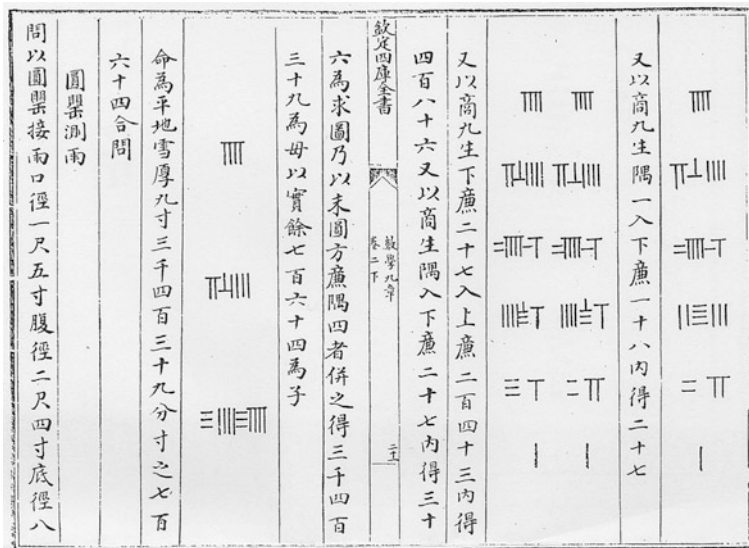 又以商九生隅一入下廉一十八内得二十七
又以商九生下廉二十七入上廉二百四十三内得
四百八十六又以商生隅入下廉二十七内得三十
欽定四庫全書
數學九章
卷二下
六為求圖乃以末圖方廉隅四者併之得三千四百
三十九為母以實餘七百六十四為子
命為平地雪厚九寸三千四百三十九分寸之七百
六十四合問
圓罌測雨
問以圓罌接雨口徑一尺五寸腹徑二尺四寸底徑八